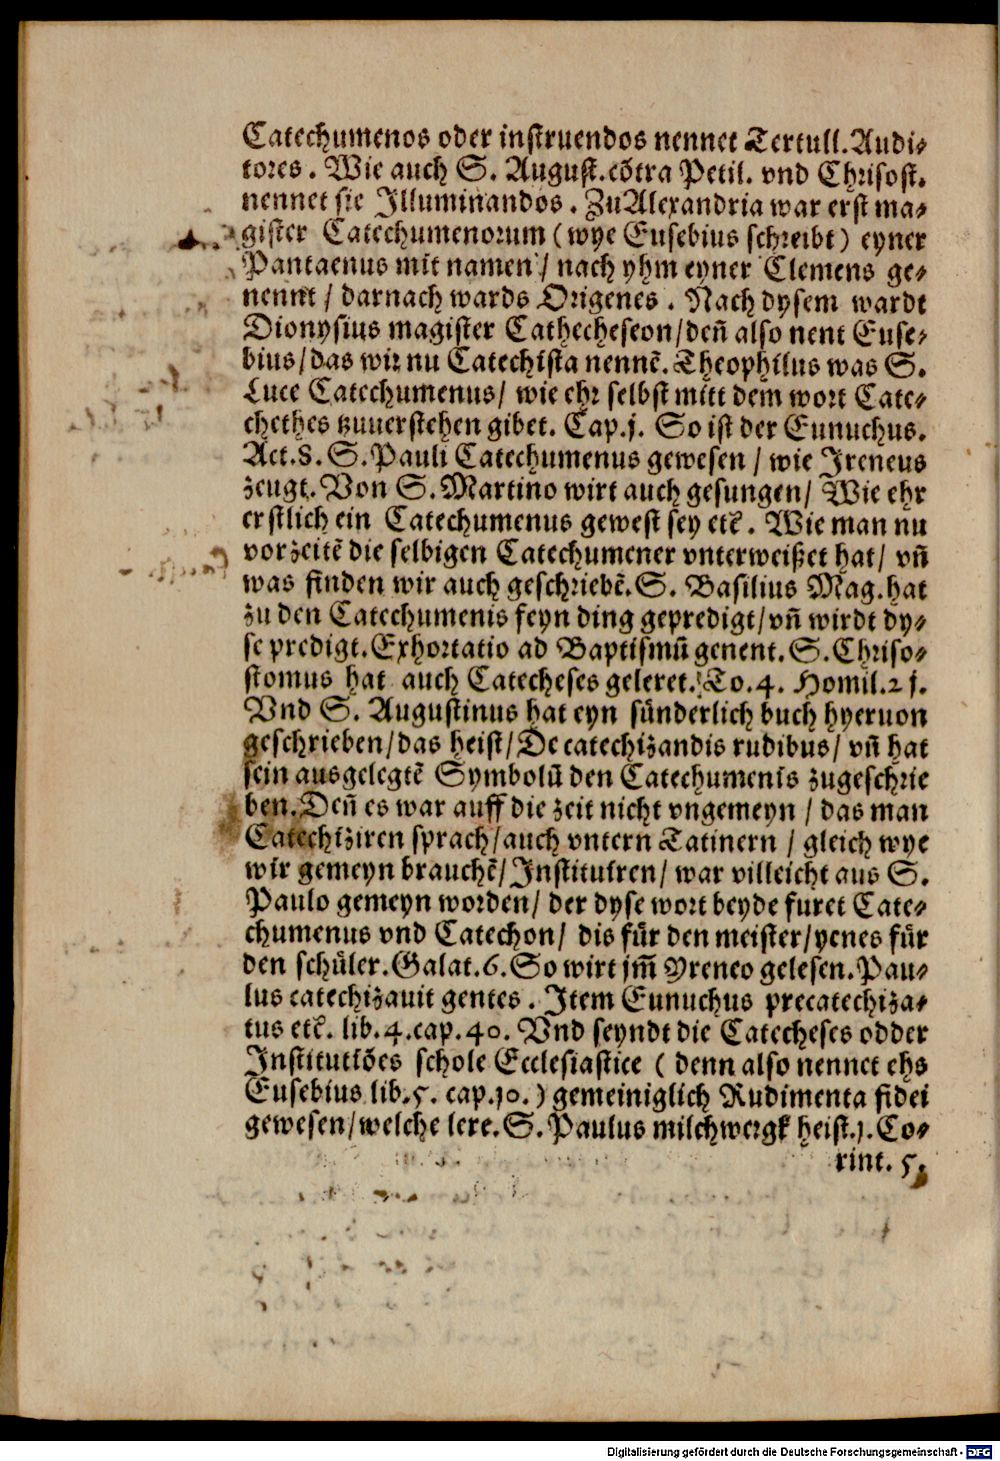 Catechumenos oder instruendos nennet Tertull. Audi⸗
tores. Wie auch S. August. cōtra Petil. vnd Chrisost.
nennet sie Illuminandos. Zu Alexandria war erst ma⸗
gister Catechumenorum (wye Eusebius schreibt) eyner
Pantaenus mit namen / nach yhm eyner Clemens ge⸗
nennt / darnach wards Origenes. Nach dysem wardt
Dionysius magister Cathecheseon/ deñ also nent Euse⸗
bius/ das wir nu Catechista nennē. Theophilus was S.
Luce Catechumenus/ wie ehr selbst mitt dem wort Cate⸗
chethes zuuerstehen gibet. Cap.j. So ist der Eunuchus.
Act.8. S. Pauli Catechumenus gewesen / wie Ireneus
zeugt. Von S. Martino wirt auch gesungen/ Wie ehr
erstlich ein Catechumenus gewest sey etc̄. Wie man nu
vorzeitē die selbigen Catechumener vnterweißet hat/ vñ
was finden wir auch geschriebē. S. Basilius Mag. hat
zu den Catechumenis feyn ding gepredigt/ vñ wirdt dy⸗
se predigt. Exhortatio ad Baptismū genent. S. Chriso⸗
stomus hat auch Catecheses geleret. To.4. Homil.2j.
Vnd S. Augustinus hat eyn sünderlich buch hyeruon
geschrieben/ das heist/ De catechizandis rudibus/ vñ hat
sein ausgelegtē Symbolū den Catechumenis zugeschrie
ben. Deñ es war auff die zeit nicht vngemeyn / das man
Catechiziren sprach/ auch vntern Latinern / gleich wye
wir gemeyn brauchē/ Instituiren/ war villeicht aus S.
Paulo gemeyn worden/ der dyse wort beyde furet Cate⸗
chumenus vnd Catechon/ dis für den meister/ yenes für
den schüler. Galat.6. So wirt jm̄ Yreneo gelesen. Pau⸗
lus catechizauit gentes. Item Eunuchus precatechiza⸗
tus etc̄. lib.4. cap.40. Vnd seyndt die Catecheses odder
Institutiões schole Ecclesiastice (denn also nennet ehs
Eusebius lib.5. cap.jo.) gemeiniglich Rudimenta fidei
gewesen/ welche lere. S. Paulus milchwergk heist.j. Co⸗
rint. 5.
Digitalisierung gefördert durch die Deutsche Forschungsgemeinschaft - DFG